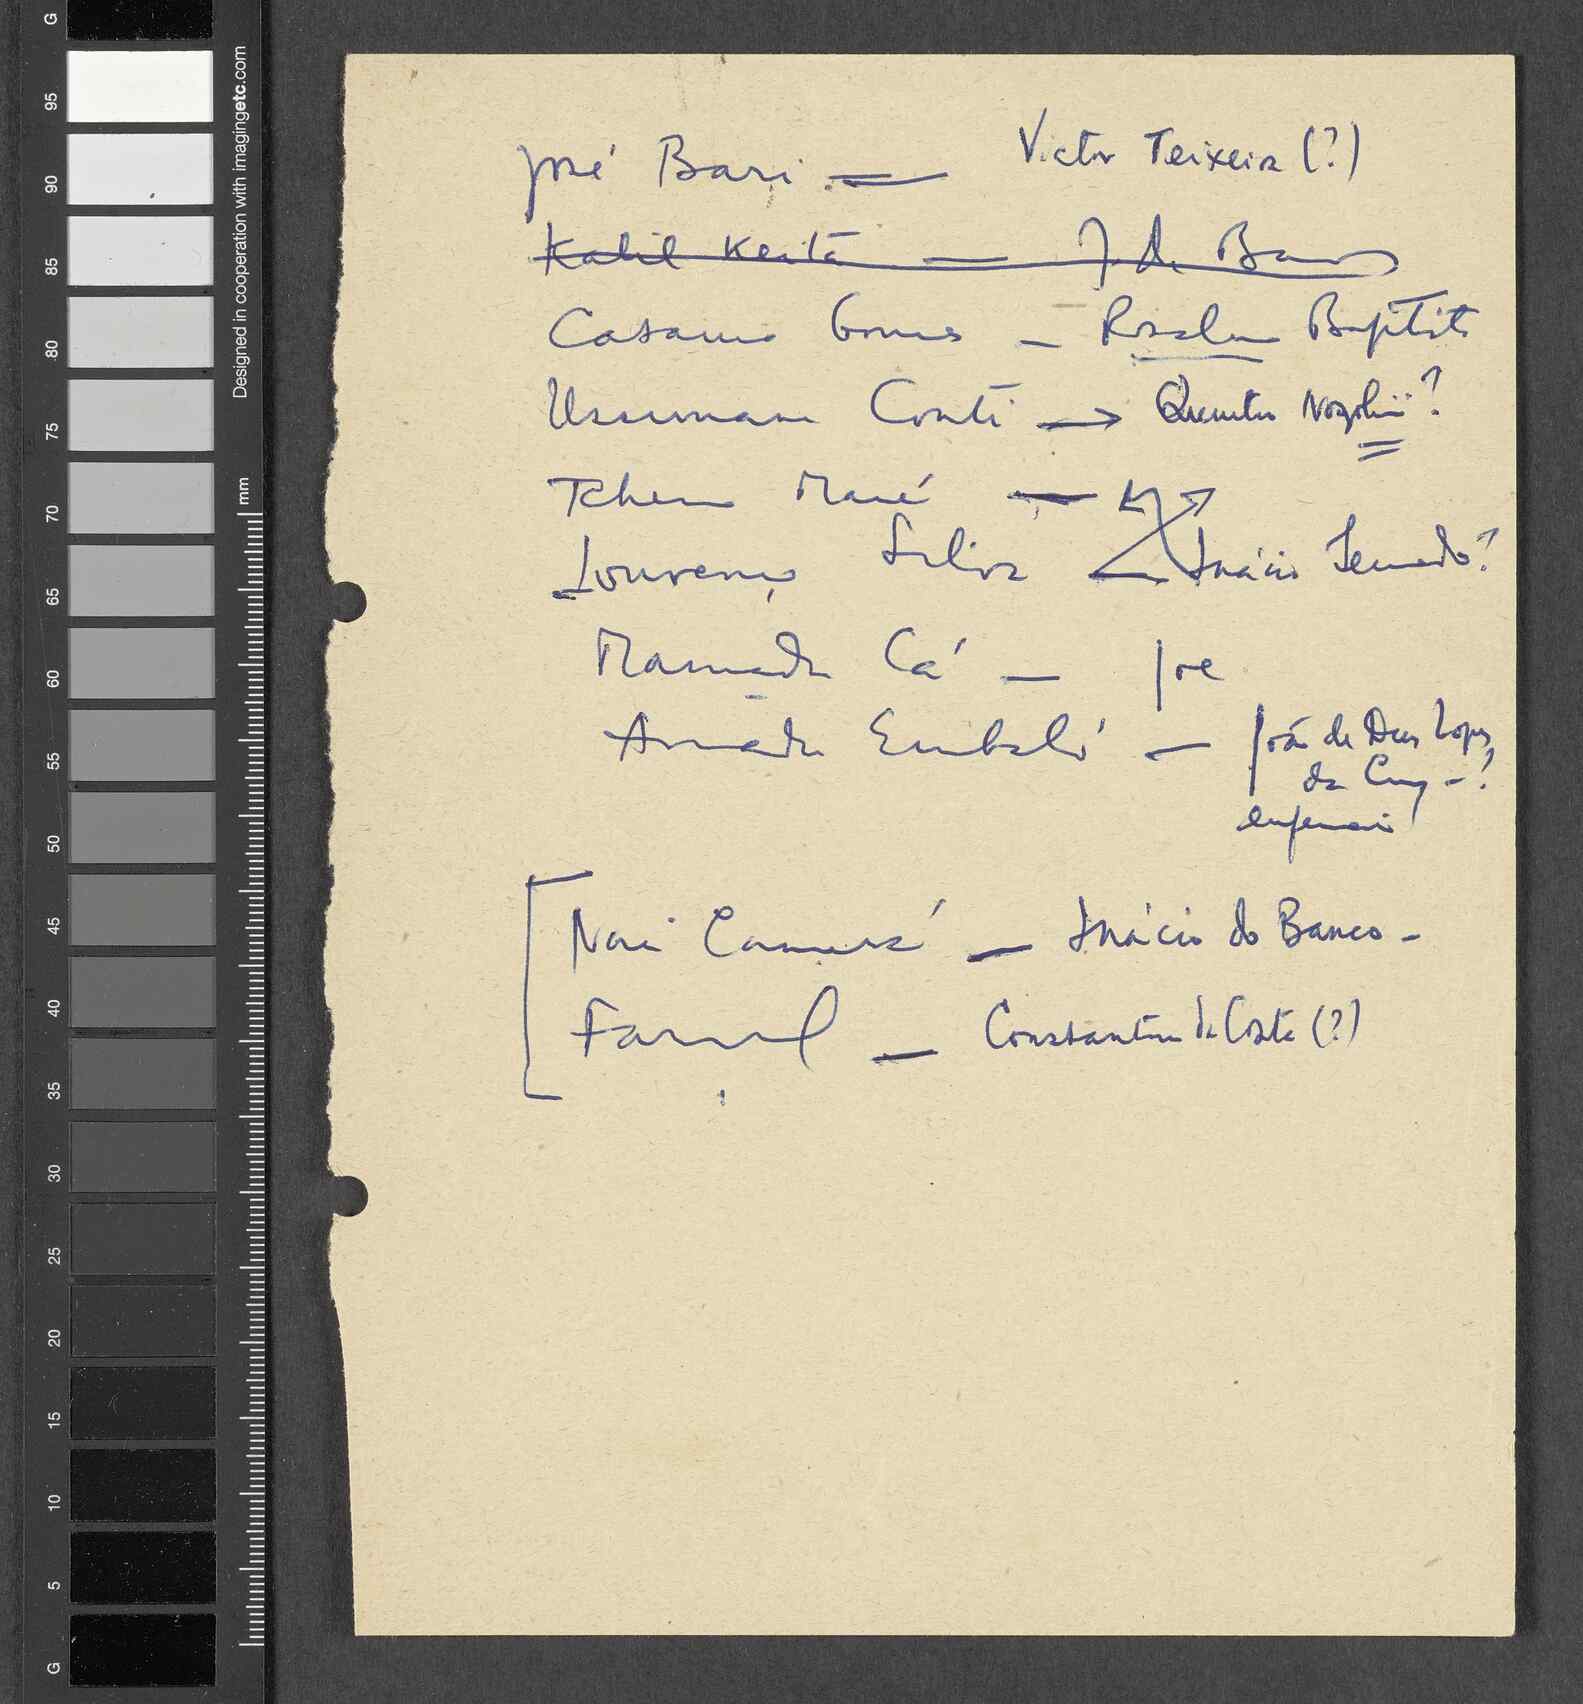 José Bari = Victor Teixeira (?)
Kabil Keita — J. de Barros
Casamo Gomes — Baptista
Ussumane Conté → Quintino Nozolini?
Mané —
Lourenço Silva — Inácio Semedo?
Mamadu Cá —
Amadu Embaló — João de Deus Lopes
da Cruz - ?
enfermeiro
Nori Camará — Inácio do Banco -
— Constantino da Costa (?)
G
95
90
85
80
75
70
65
60
55
50
45
40
35
30
25
20
15
10
5
G
Designed in cooperation with imagingetc.com
mm